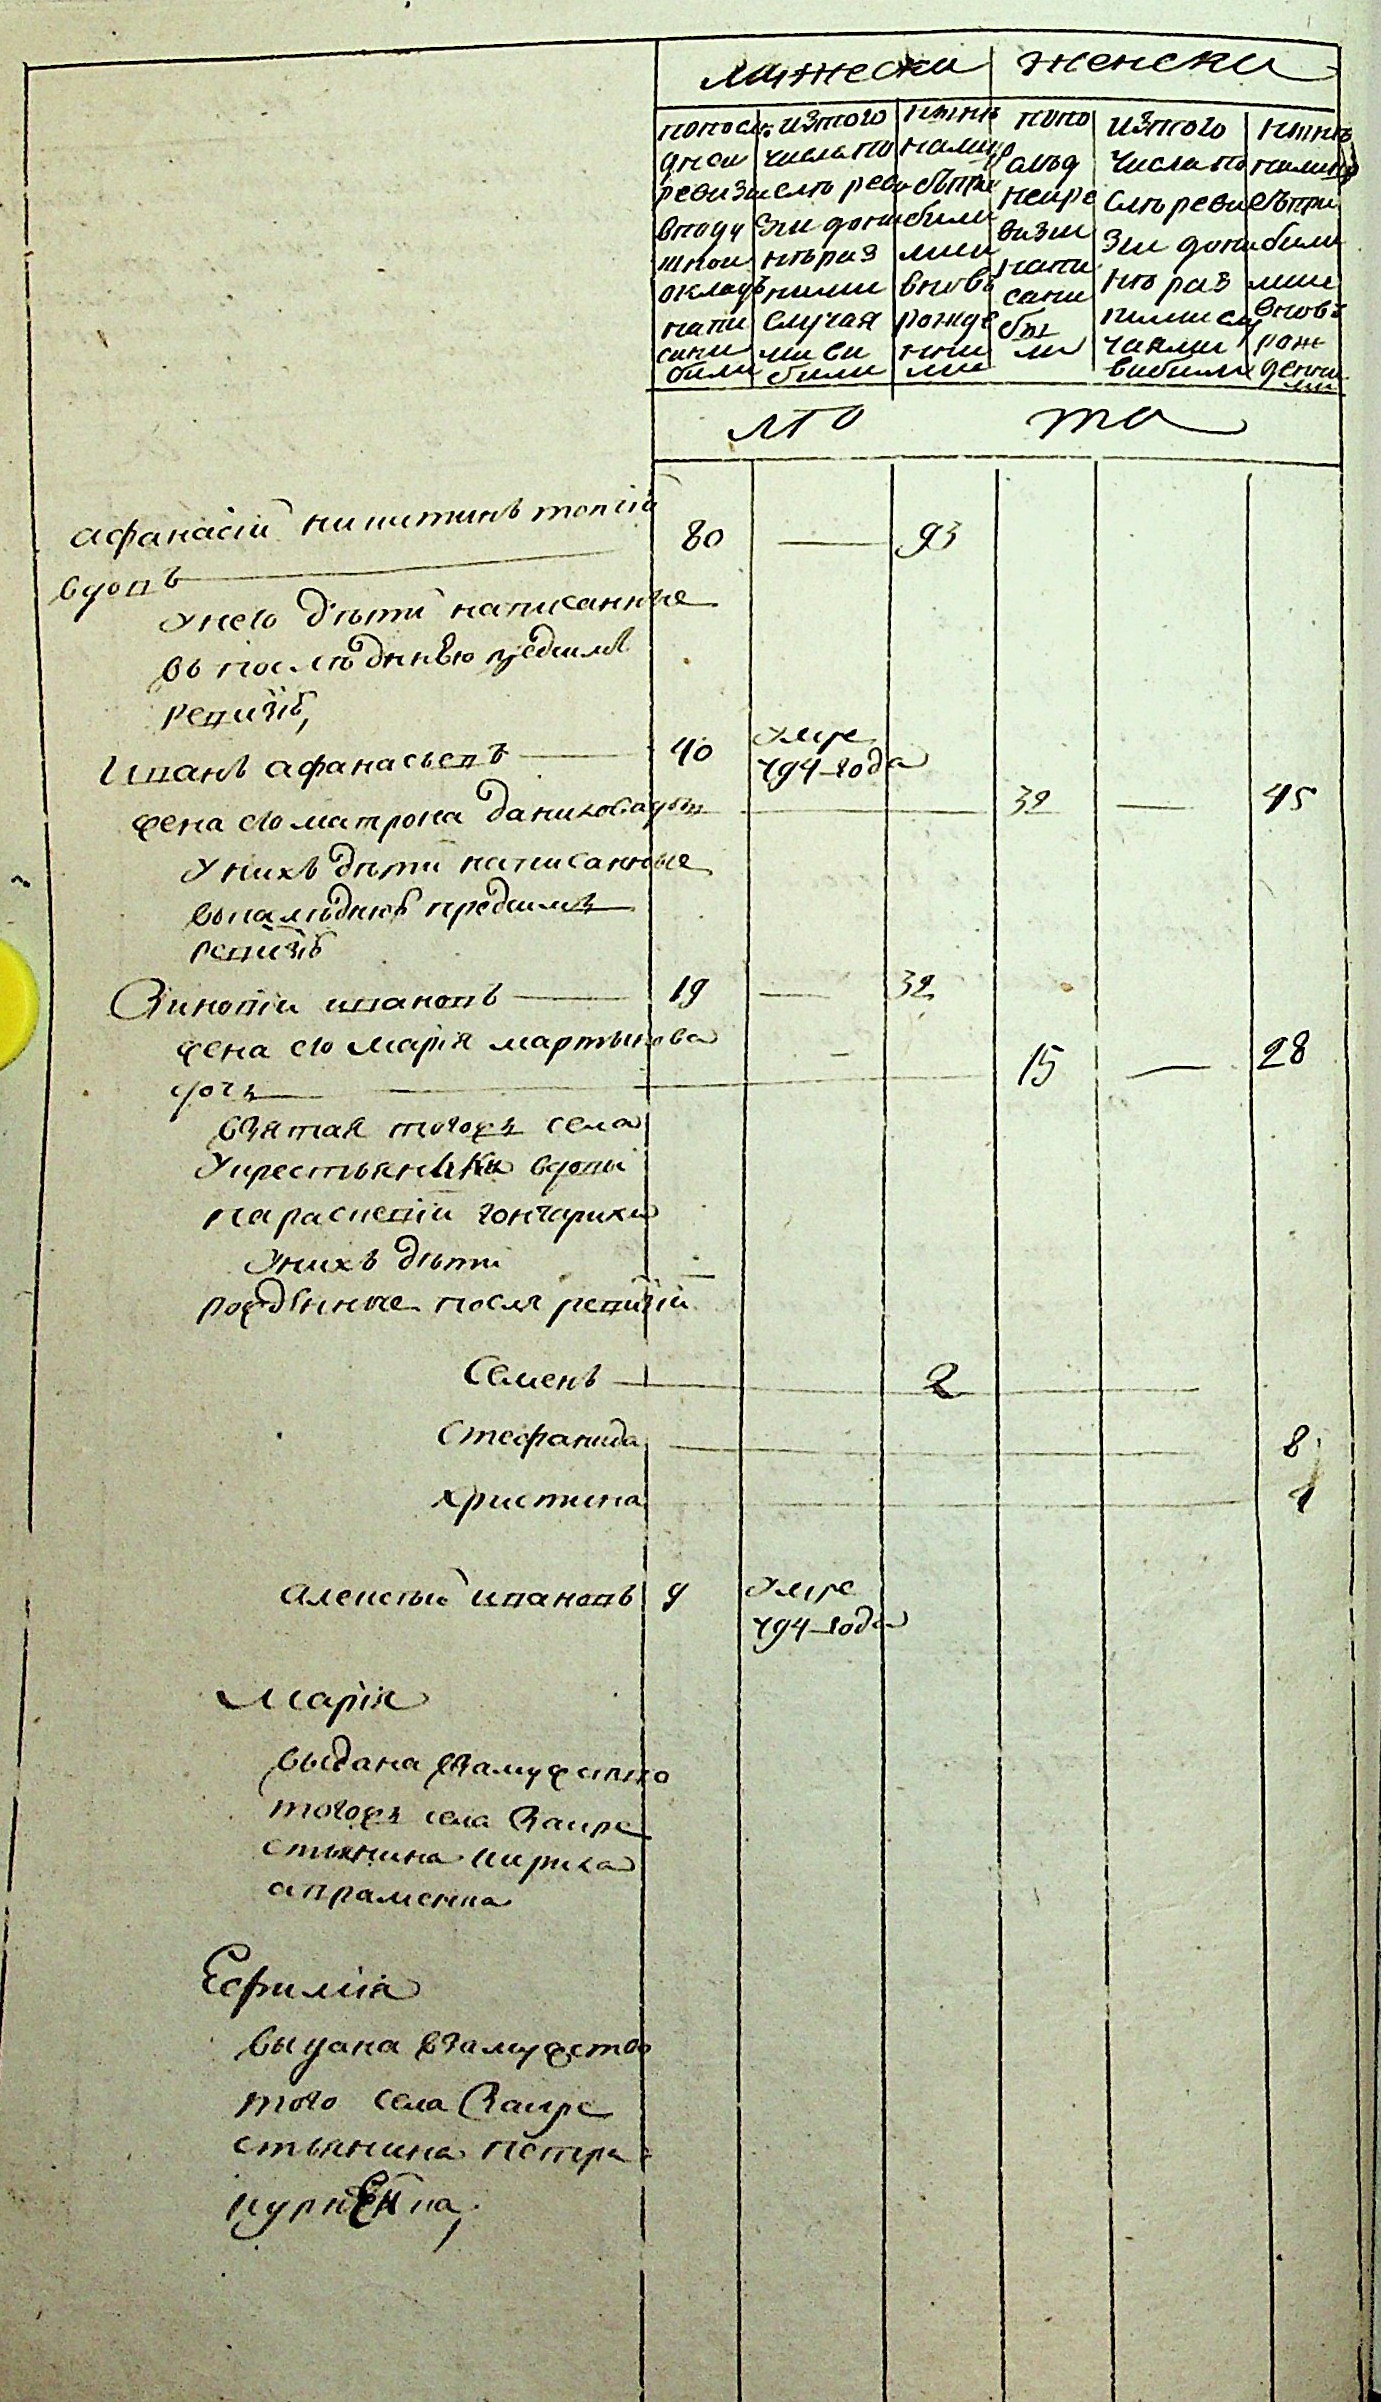 мужески женски
попосле
дней
ревизи
вподу
шной
окладъ
напи
саны
были
изтого
числа по
слъ реви
зии дони
нъ раз
ными
случая
ми вы
были
нынъ
налицо
съпри
были
ми
вновь
рожде
нны
ми
попо
слъд
ней ре
визии
напи
саны
бы
ли
изтого
числа по
слъ реви
зии дони
нъ раз
ными слу
чаями
выбыли
нынъ
налицо
съпри
были
ми
вновъ
рож
денны
ми
лъ та
афанасій никитинъ 80 — 93
вдовъ
Унего дъти написанные
въ послъднью предъ симъ
ревизіь,
Иванъ афанасьевъ — 40 умре
794 года
жена его матрона данилова дочь 32 — 45
У нихъ дъти написанные
въпослъднюь предсимъ
ревизіь
Зиновій ивановъ — 19 — 32
жена его марія мартынова - 15 — 28
дочь
взятая тогожъ села
Укрестьянки вдовы
параскевіи гончарихи
Унихъ дъти
рожденные после ревизіи
Семенъ — 2
Стефанида — 8
христина — 4
алексъй ивановъ 9 Умре
794 года
Марія
выдана взамужство
тогожъ села закре
стьянина кирила
авраменка
Ефимія
выдана взамужство
того села закре
стьянина петра